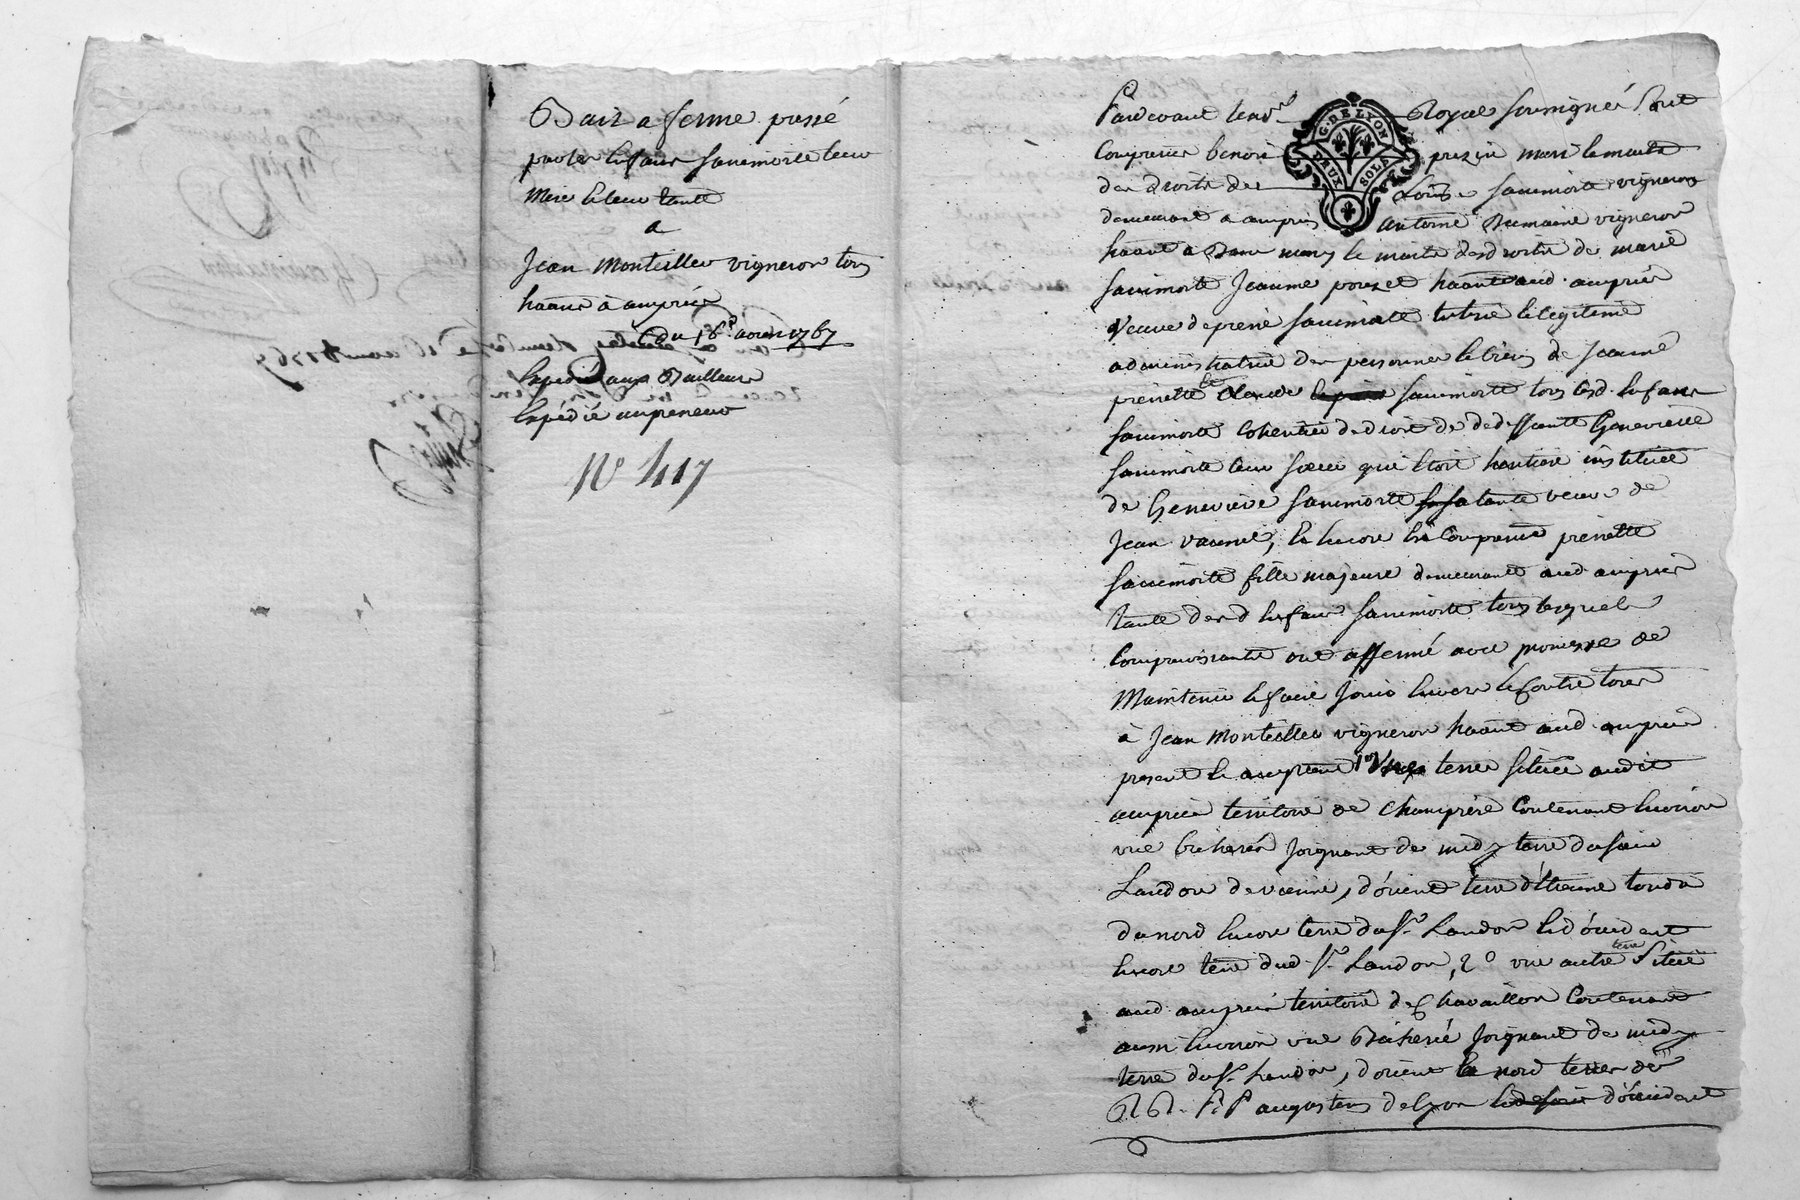 Bail a ferme passé
par les enfans Sanimorte leur
Mere et leur tante
a
Jean Monteiller vigneron tous
hãans à ampuis
Du 16e aoust 1767
Expedié aux Bailleurs
Expédié au preneur
N° 417
Pardevant le nore Royal soussigné sont
G. DE LYON
DEUX SOLS
Comparus benoit prezin mari le maitre
des droits de Louise Sanimorte vigneron
demeurant a ampuis antoine Dumaine vigneron
hãant a mary le maitre des droits de marie
Sanimorte Jeanne pouzet hãante aud. ampuis
Veuve de pierre Sanimorte tutrice et légitime
administratrice des personnes et biens de Jeanne
pierrette et claude Sanimorte tous lesd. enfans
Sanimorte Cohéritiers de droit de deffunte Genevieve
Sanimorte leur soeur qui étoit héritiere instituée
de Genevieve Sanimorte sa tante veuve de
Jean vaume, et encore est Comparue pierrette
Sanimorte fille majeure demeurante aud ampuis
tante desd enfans Sanimorte tous lesquels
Comparoissants ont affermé avec promesse de
Maintenir et faire Jouir envers et contre tous
à Jean Monteiller vigneron hãant aud ampuis
present et acceptant 1° Une terre située audit
ampuis territoire de Champrére Contenant environ
une bicherée Joignant de midy terre du sieur
Landon de vienne, d'orient terre d'étienne
du nord encore terre du Sr. Landon et d'occident
encore terre dud. Sr. Landon, 2° une autre terre Située
aud ampuis territoire de Chavaillon Contenant
aussi environ une Bicherée Joignant de midy
terre du Sr. Landon, d'orient et nord terres des
RR. PP augustins de lyon d'occident